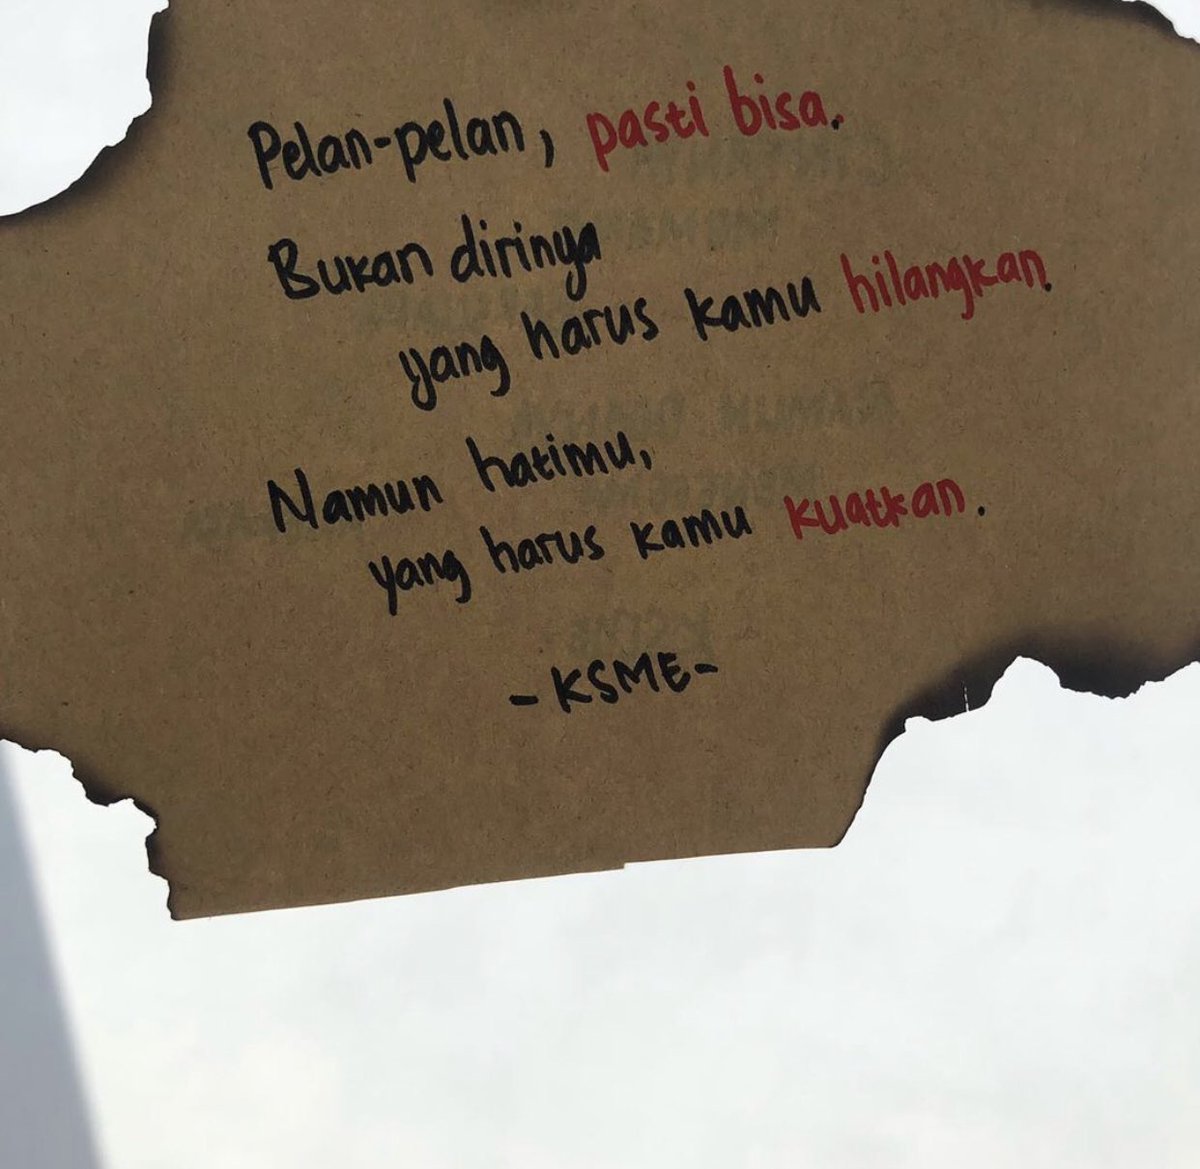 Pelan-pelan, pasti bisa.
Bukan dirinya
yang harus kamu hilangkan.
Namun hatimu,
yang harus kamu kuatkan.
-KSME-